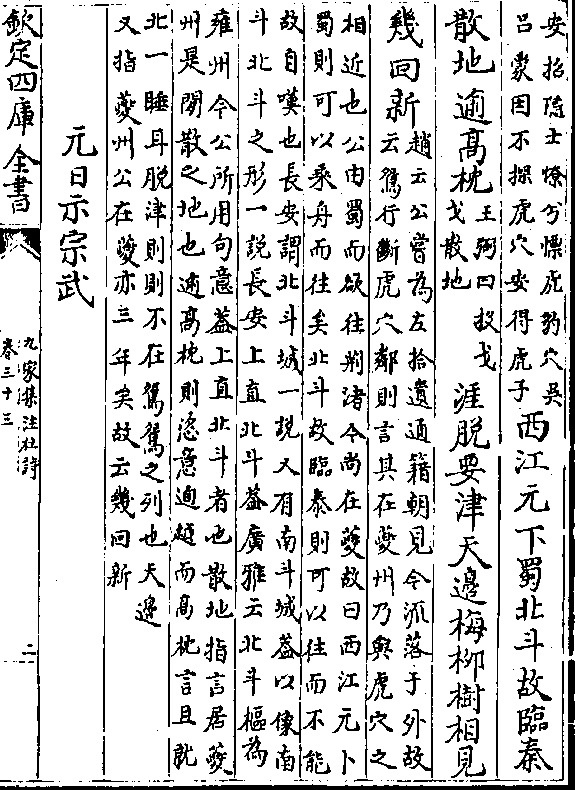 安招隱士憭兮慄虎豹穴吳
呂蒙因不探虎穴安得虎子
西江元下蜀北斗故臨秦
散地逾髙枕
王弼曰投戈
戈散地
涯脫要津天邊梅柳樹相見
幾回新
趙云公嘗為左拾遺通籍朝見今流落于外故
云鴛行斷虎穴鄰則言其在夔州乃與虎穴之
相近也公由蜀而欲往荆渚今尚在夔故曰西江元卜
蜀則可以乗舟而往矣北斗故臨秦則可以往而不能
故自嘆也長安謂北斗城一説又有南斗城葢以像南
斗北斗之形一説長安上直北斗葢廣雅云北斗樞為
雍州今公所用句意葢上直北斗者也散地指言居夔
州是閒散之地也逾髙枕則恣意逾越而髙枕言且就
北一睡耳脫津則則不在鴛鴦之列也天邊
又指夔州公在夔亦三年矣故云幾回新
元日示宗武
欽定四庫全書
九家集注杜詩
卷三十三
二